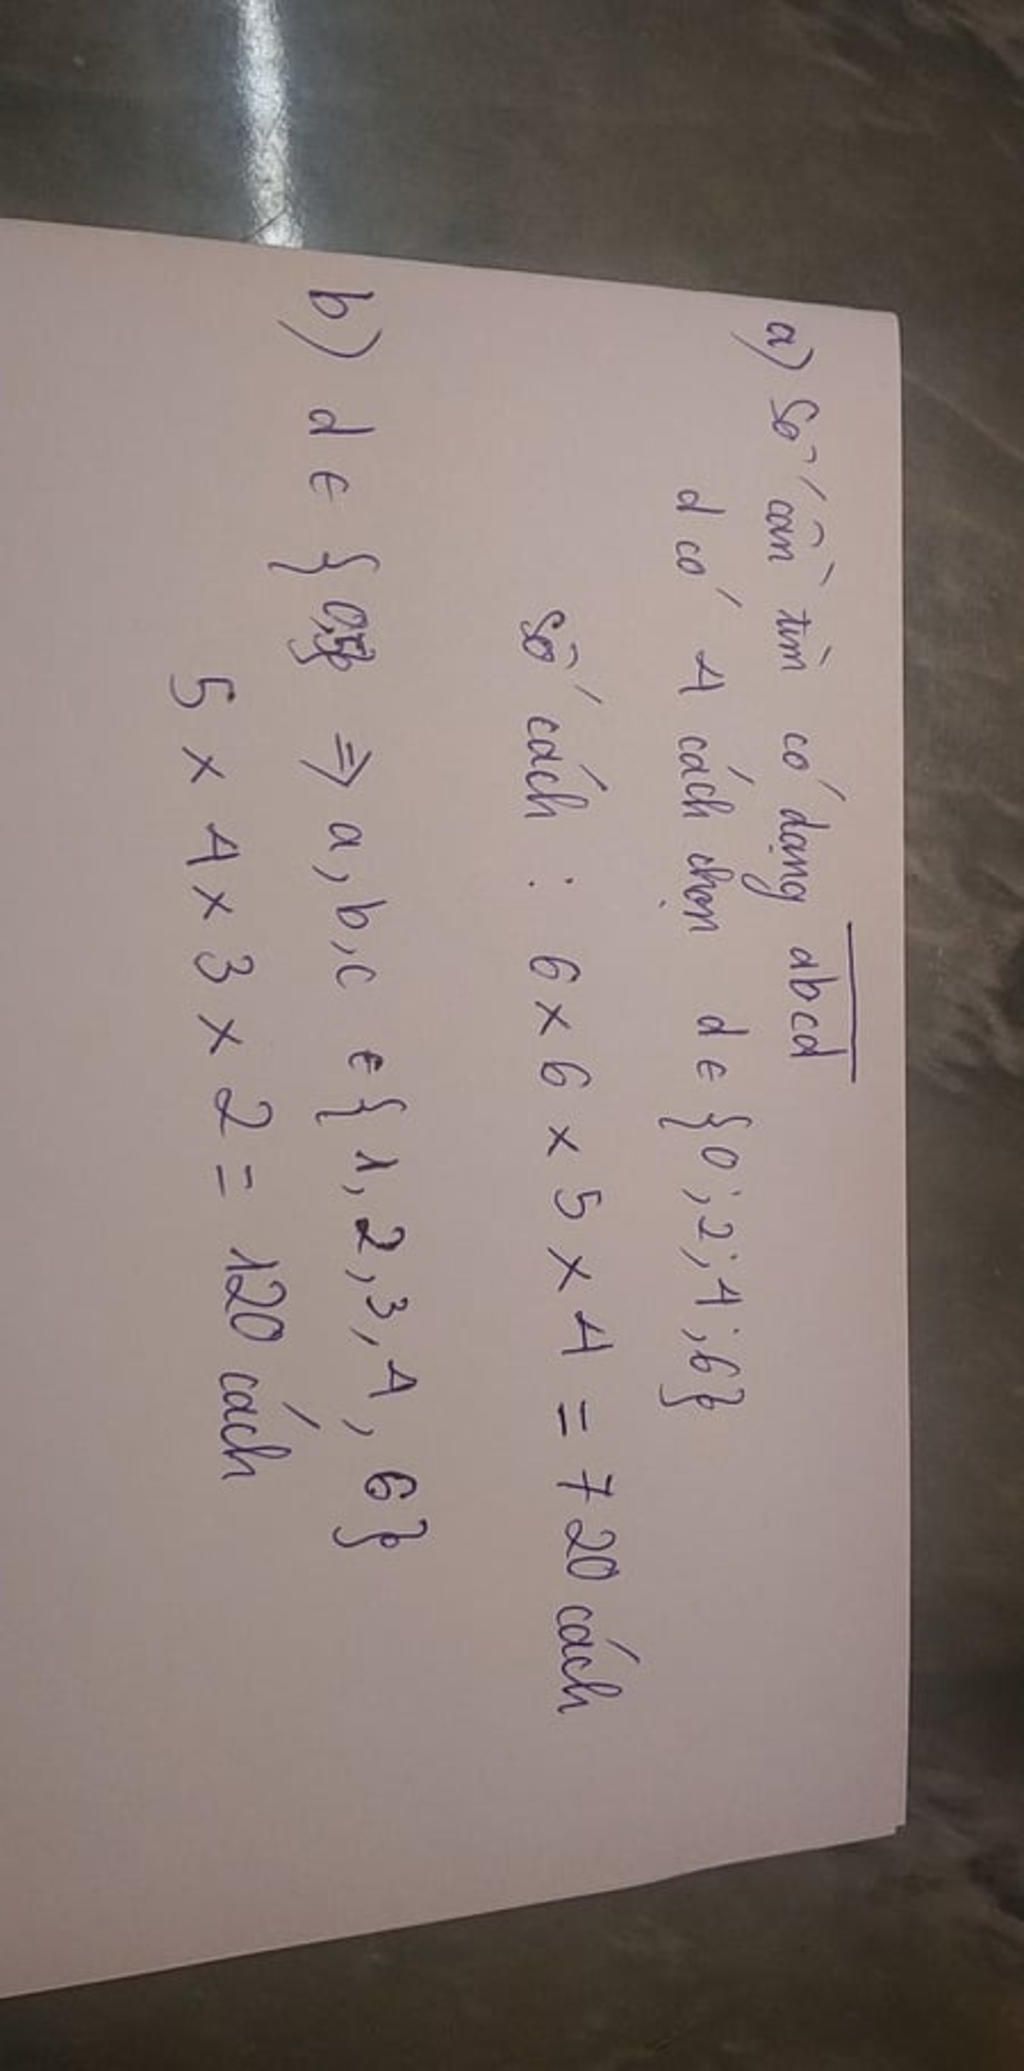 a) Số cần tìm có dạng abcd
d có 4 cách chọn d ∈ {0; 2; 4; 6}
số cách : 6 × 6 × 5 × 4 = 720 cách
b) d ∈ {0,5} ⇒ a, b, c ∈ {1, 2, 3, 4, 6}
5 × 4 × 3 × 2 = 120 cách